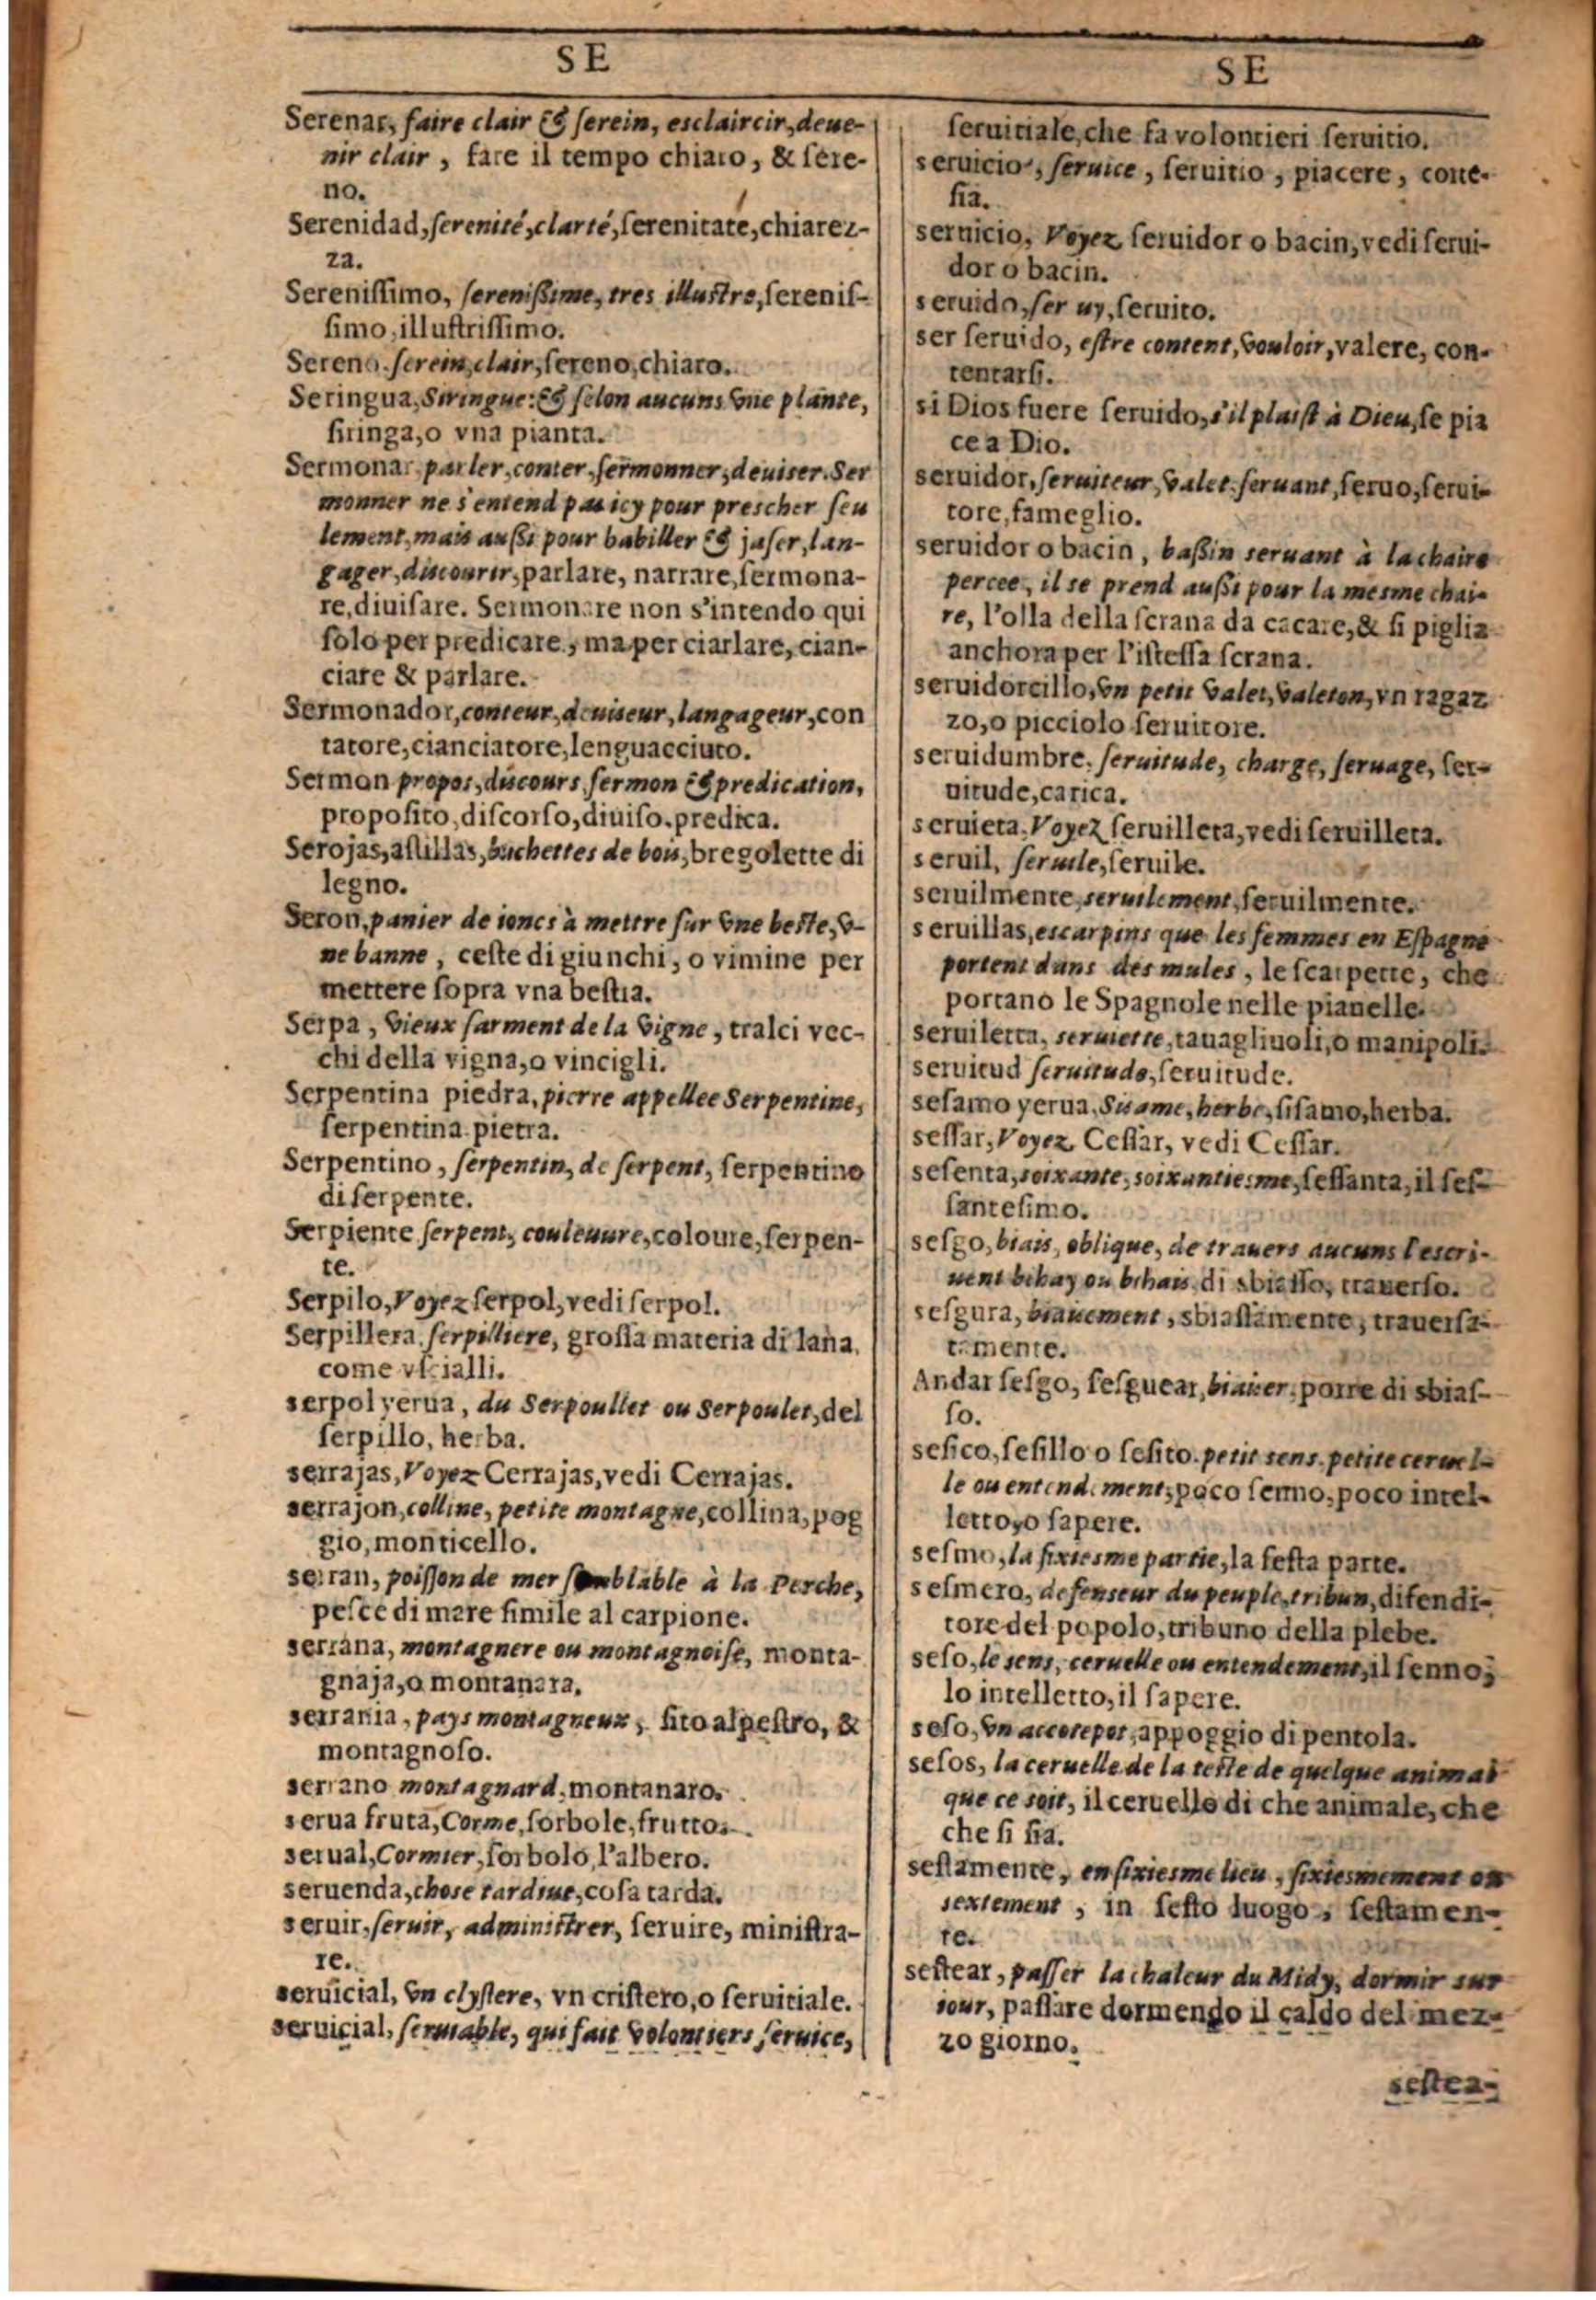 SE
Serenar, faire clair & ſerein, esclaircir, deue-
nir clair, fare il tempo chiaro, & ſere-
no.
Serenidad, ſerenité, clarté, ſerenitate, chiarez-
za.
Sereniſſimo, ſereniſsime, tres illuſtre, ſereniſ-
ſimo, illuſtriſſimo.
Sereno. ſerein, clair, ſereno, chiaro.
Seringua, Siringue: & ſelon aucuns vne plante,
ſiringa, o vna pianta.
Sermonar parler, conter, ſermonner, deuiser. Ser
monner ne s'entend pas icy pour prescher ſeu
lement, mais auſsi pour babiller & jaſer, lan-
gager, discourir, parlare, narrare, ſermona-
re, diuiſare. Sermonare non s'intendo qui
ſolo per predicare, ma per ciarlare, cian-
ciare & parlare.
Sermonador, conteur, deuiseur, langageur, con
tatore, cianciatore, lenguacciuto.
Sermon propos, discours, ſermon & predication,
propoſito, diſcorſo, diuiſo. predica.
Serojas, aſtillas, buchettes de bois, bregolette di
legno.
Seron, panier de ioncs à mettre ſur vne beſte, v-
ne banne, ceſte di giunchi, o vimine per
mettere ſopra vna beſtia.
Serpa, vieux ſarment de la vigne, tralci vec-
chi della vigna, o vincigli.
Serpentina piedra, pierre appellee Serpentine,
ſerpentina pietra.
Serpentino, ſerpentin, de ſerpent, ſerpentino
di ſerpente.
Serpiente ſerpent, couleuure, coloure, ſerpen-
te.
Serpilo, Voyez ſerpol, vedi ſerpol.
Serpillera, ſerpilliere, groſſa materia di lana,
come vſcialli.
serpol yerua, du Serpoullet ou Serpoulet, del
ſerpillo, herba.
serrajas, Voyez Cerrajas, vedi Cerrajas.
serrajon, colline, petite montagne, collina, pog
gio, monticello.
serran, poiſſon de mer ſemblable à la Perche,
peſce di mare ſimile al carpione.
serrana, montagnere ou montagnoiſe, monta-
gnaja, o montanara.
serrania, pays montagneux, ſito alpeſtro, &
montagnoſo.
serrano montagnard, montanaro.
serua fruta, Corme, ſorbole, frutto.
serual, Cormier, ſorbolo, l'albero.
seruenda, chose tardiue, coſa tarda.
seruir, ſeruir, adminiſtrer, ſeruire, miniſtra-
re.
seruicial, vn clyſtere, vn criſtero, o ſeruitiale.
seruicial, ſeruiable, qui fait volontiers ſeruice,
SE
ſeruitiale, che fa volontieri ſeruitio.
seruicio, ſeruice, ſeruitio, piacere, corte-
ſia.
seruicio, Voyez ſeruidor o bacin, vedi ſerui-
dor o bacin.
seruido, ſeruy, ſeruito.
ser ſeruido, eſtre content, vouloir, valere, con-
tentarſi.
si Dios fuere ſeruido, s'il plaiſt à Dieu, ſe pia
ce a Dio.
seruidor, ſeruiteur, valet. ſeruant, ſeruo, ſerui-
tore, fameglio.
seruidor o bacin, baſsin seruant à la chaire
percee, il se prend auſsi pour la mesme chai-
re, l'olla della ſcrana da cacare, & ſi piglia
anchora per l'iſteſſa ſcrana.
seruidorcillo, vn petit valet, valeton, vn ragaz
zo, o picciolo ſeruitore.
seruidumbre, ſeruitude, charge, ſeruage, ſer-
uitude, carica.
seruieta, Voyez ſeruilleta, vedi ſeruilleta.
seruil, ſeruile, ſeruile.
seruilmente, seruilement, ſeruilmente.
seruillas, escarpins que les femmes en Eſpagne
portent dans des mules, le ſcarpette, che
portano le Spagnole nelle pianelle.
seruiletta, seruiette, tauagliuoli, o manipoli.
seruitud ſeruitude, ſeruitude.
seſamo yerua, Sisame, herbe, ſiſamo, herba.
seſſar, Voyez Ceſſar, vedi Ceſſar.
seſenta, soixante, soixantiesme, ſeſſanta, il ſeſ-
ſanteſimo.
seſgo, biais, oblique, de trauers aucuns l'escri-
uent bihay ou bihais, di sbiaſſo, trauerſo.
seſgura, biaisement, sbiaſſamente, trauerſa-
tamente.
Andar ſeſgo, ſeſguear, biaiser, porre di sbiaſ-
ſo.
seſico, ſeſillo o ſeſito. petit sens, petite ceruel-
le ou entendement, poco ſenno, poco intel-
letto, o ſapere.
seſmo, la ſixiesme partie, la ſeſta parte.
seſmero, defenseur du peuple, tribun, difendi-
tore del popolo, tribuno della plebe.
seſo, le sens, ceruelle ou entendement, il ſenno,
lo intelletto, il ſapere.
seſo, vn accotepot, appoggio di pentola.
seſos, la ceruelle de la teſte de quelque animal
que ce soit, il ceruello di che animale, che
che ſi ſia.
seſtamente, en ſixiesme lieu, ſixiesmement ou
sextement, in ſeſto luogo, ſeſtamen-
te.
seſtear, paſſer la chaleur du Midy, dormir sur
iour, paſſare dormendo il caldo del mez-
zo giorno.
seſtea-